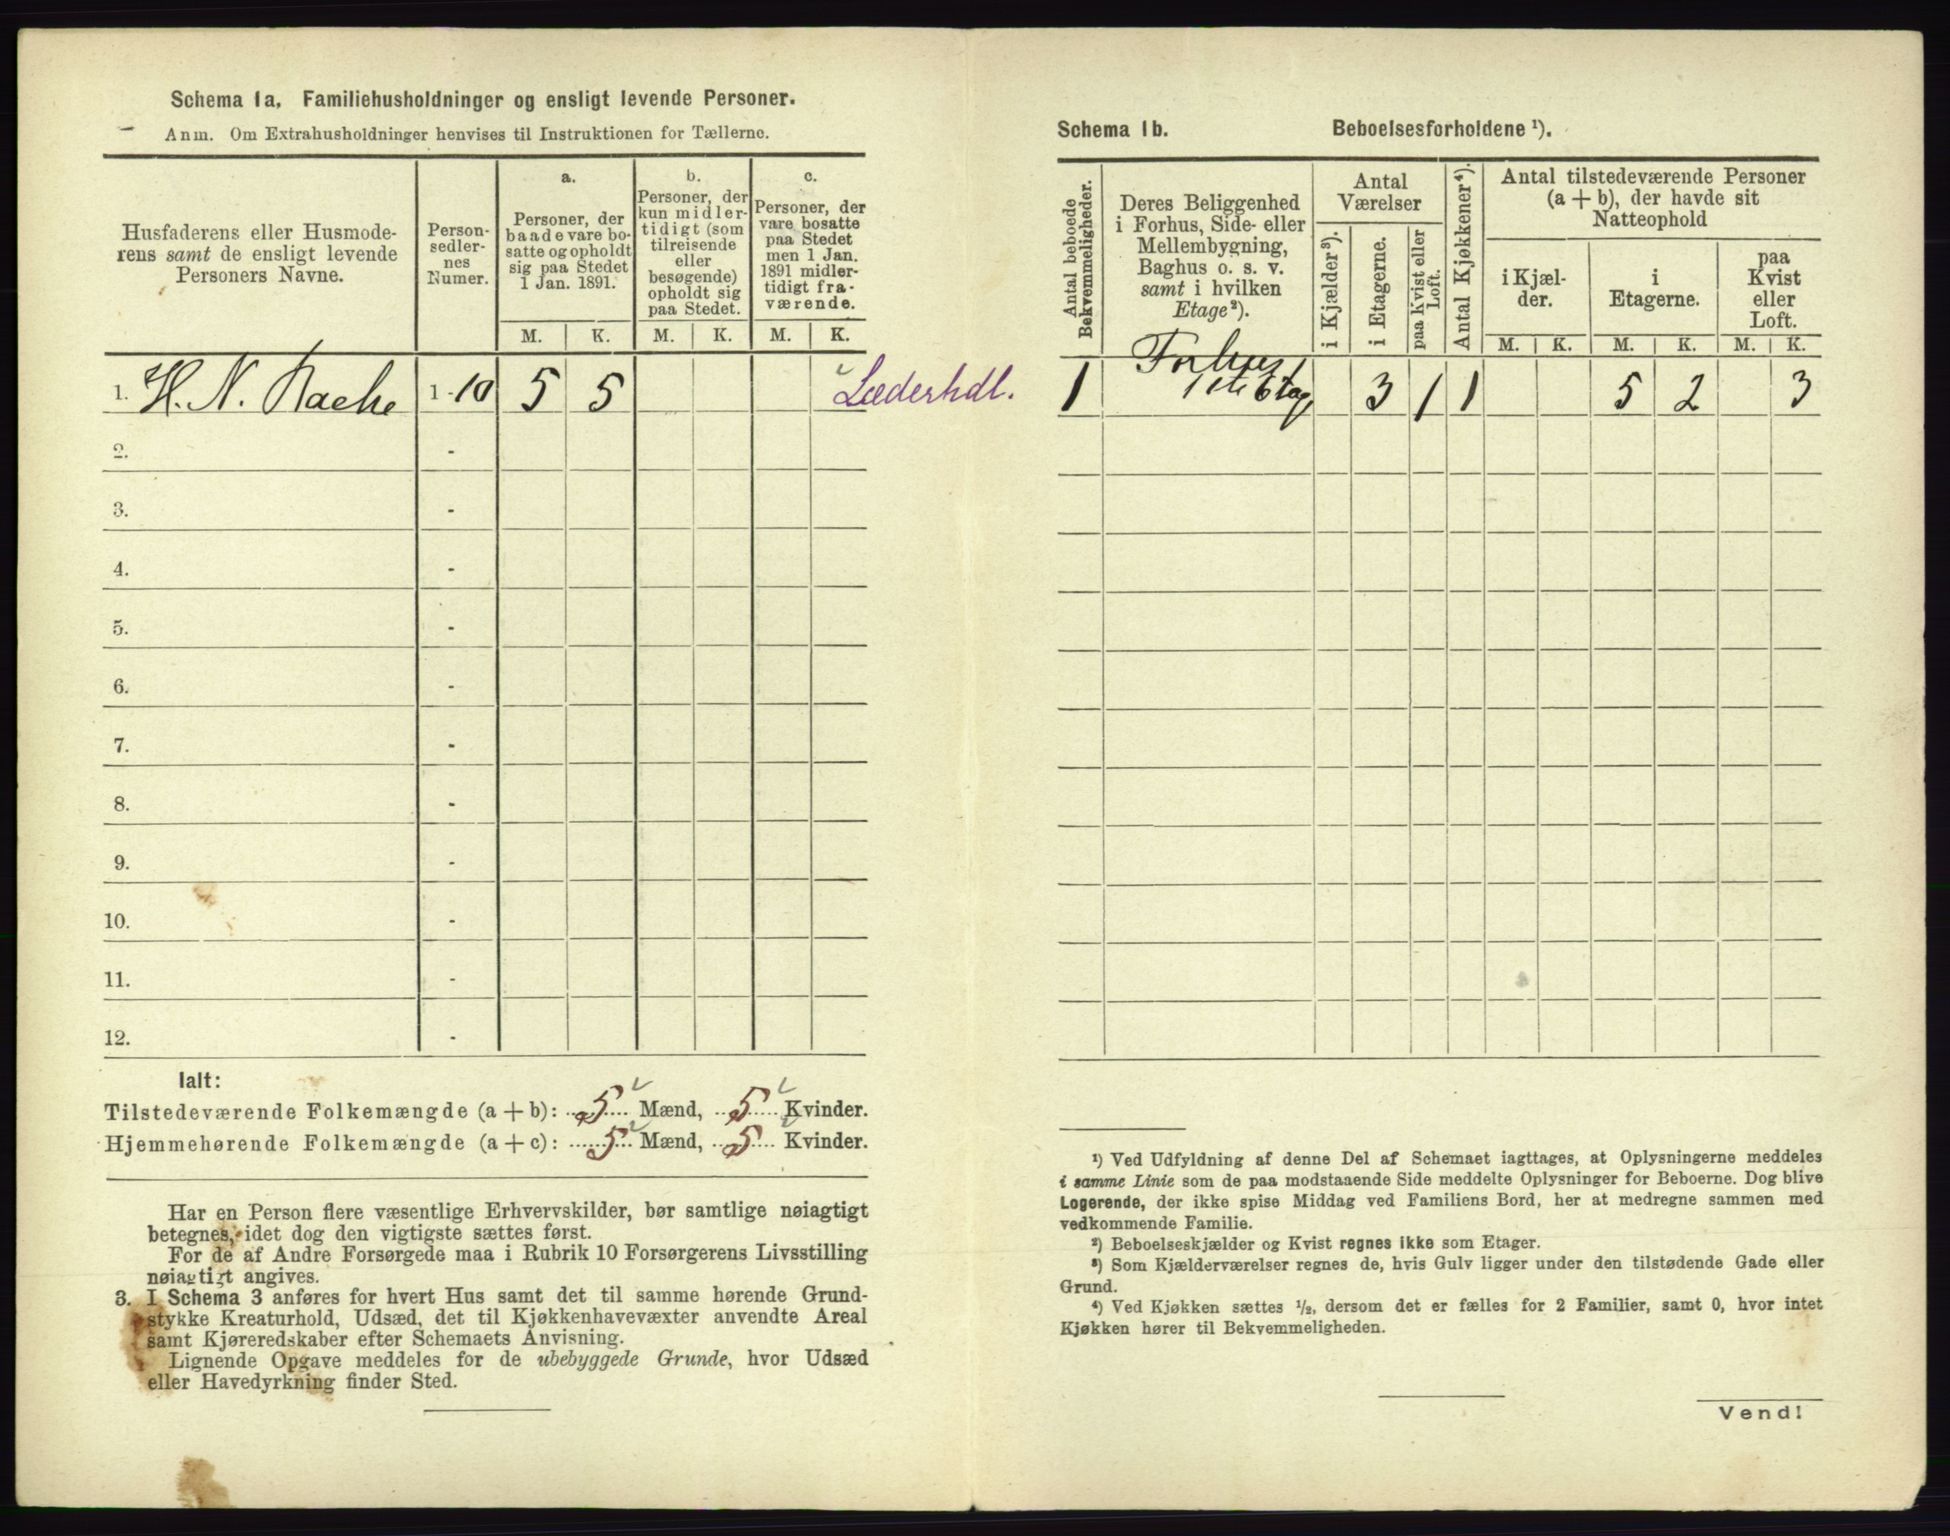 Schema 1a. Familiehusholdninger og ensligt levende Personer.
Anm. Om Extrahusholdninger henvises til Instruktionen for Tællerne.
Husfaderens eller Husmode-
rens samt de ensligt levende
Personers Navne.
Person-
sedler-
nes
Numer.
a.
Personer, der
baade vare bo-
satte og opholdt
sig paa Stedet
1 Jan. 1891.
b.
Personer, der
kun midler-
tidigt (som
tilreisende
eller
besøgende)
opholdt sig
paa Stedet.
c.
Personer, der
vare bosatte
paa Stedet
men 1 Jan.
1891 midler-
tidigt fra-
værende.
M. K. M. K. M. K.
1. H. N. Rache 1-10 5 5 Læderhdl.
2. -
3. -
4. -
5. -
6. -
7. -
8. -
9. -
10. -
11. -
12. -
Ialt:
Tilstedeværende Folkemængde (a + b): 5 Mænd, 5 Kvinder.
Hjemmehørende Folkemængde (a + c): 5 Mænd, 5 Kvinder.
Har en Person flere væsentlige Erhvervskilder, bør samtlige nøiagtigt
betegnes, idet dog den vigtigste sættes først.
For de af Andre Forsørgede maa i Rubrik 10 Forsørgerens Livsstilling
nøiagtigt angives.
3. I Schema 3 anføres for hvert Hus samt det til samme hørende Grund-
stykke Kreaturhold, Udsæd, det til Kjøkkenhavevæxter anvendte Areal
samt Kjøreredskaber efter Schemaets Anvisning.
Lignende Opgave meddeles for de ubebyggede Grunde, hvor Udsæd
eller Havedyrkning finder Sted.
Schema 1b. Beboelsesforholdene ¹).
Antal beboede
Bekvemmeligheder.
Deres Beliggenhed
i Forhus, Side- eller
Mellembygning,
Baghus o. s. v.
samt i hvilken
Etage²).
Antal
Værelser
i Kjælder³).
i Etagerne.
paa Kvist eller
Loft.
Antal Kjøkkener⁴).
Antal tilstedeværende Personer
(a + b), der havde sit
Natteophold
i Kjæl-
der.
i
Etagerne.
paa
Kvist
eller
Loft.
M. K. M. K. M. K.
1 Forhus 3 1 1 5 2 3
1ste Etag
¹) Ved Udfyldning af denne Del af Schemaet iagttages, at Oplysningerne meddeles
i samme Linie som de paa modstaaende Side meddelte Oplysninger for Beboerne. Dog blive
Logerende, der ikke spise Middag ved Familiens Bord, her at medregne sammen med
vedkommende Familie.
²) Beboelseskjælder og Kvist regnes ikke som Etager.
³) Som Kjælderværelser regnes de, hvis Gulv ligger under den tilstødende Gade eller
Grund.
⁴) Ved Kjøkken sættes ½, dersom det er fælles for 2 Familier, samt 0, hvor intet
Kjøkken hører til Bekvemmeligheden.
Vend!